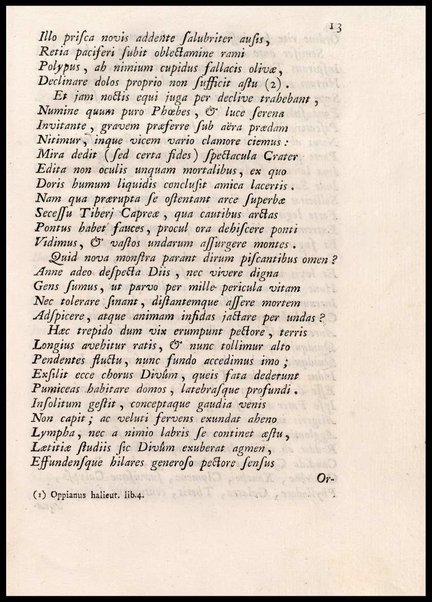 13
Illo prisca novis addente salubriter ausis,
Retia paciferi subit oblectamine rami
Polypus, ah nimium cupidus fallacis olivæ,
Declinare dolos proprio non sufficit astu (2).
Et jam noctis equi juga per declive trahebant,
Numine quum puro Phœbes, & luce serena
Invitante, gravem præferre sub aëra prædam
Nitimur, inque vicem vario clamore ciemus:
Mira dedit (sed certa fides) spectacula Crater
Edita non oculis unquam mortalibus, ex quo
Doris humum liquidis conclusit amica lacertis.
Nam qua prærupta se ostentant arce superbæ
Secessu Tiberj Capreæ, qua cautibus arctas
Pontus habet fauces, procul ora dehiscere ponti
Vidimus, & vastos undarum assurgere montes.
Quid nova monstra parant dirum piscantibus omen?
Anne adeo despecta Diis, nec vivere digna
Gens sumus, ut parvo per mille pericula vitam
Nec tolerare sinant, distantemque assere mortem
Adspicere, atque animam infidas jactare per undas?
Hæc trepido dum vix erumpunt pectore, terris
Longius avehitur ratis, & nunc tollimur alto
Pendentes fluctu, nunc fundo accedimus imo;
Exsilit ecce chorus Divûm, queis fata dederunt
Pumiceas habitare domos, latebrasque profundi.
Insolitum gestit, conceptaque gaudia venis
Non capit; ac veluti fervens exundat aheno
Lympha, nec a nimio labris se continet æstu,
Lætitiæ studiis sic Divûm exuberat agmen,
Effundensque hilares generoso pectore sensus
Or-
(1) Oppianus halieut. lib.4.